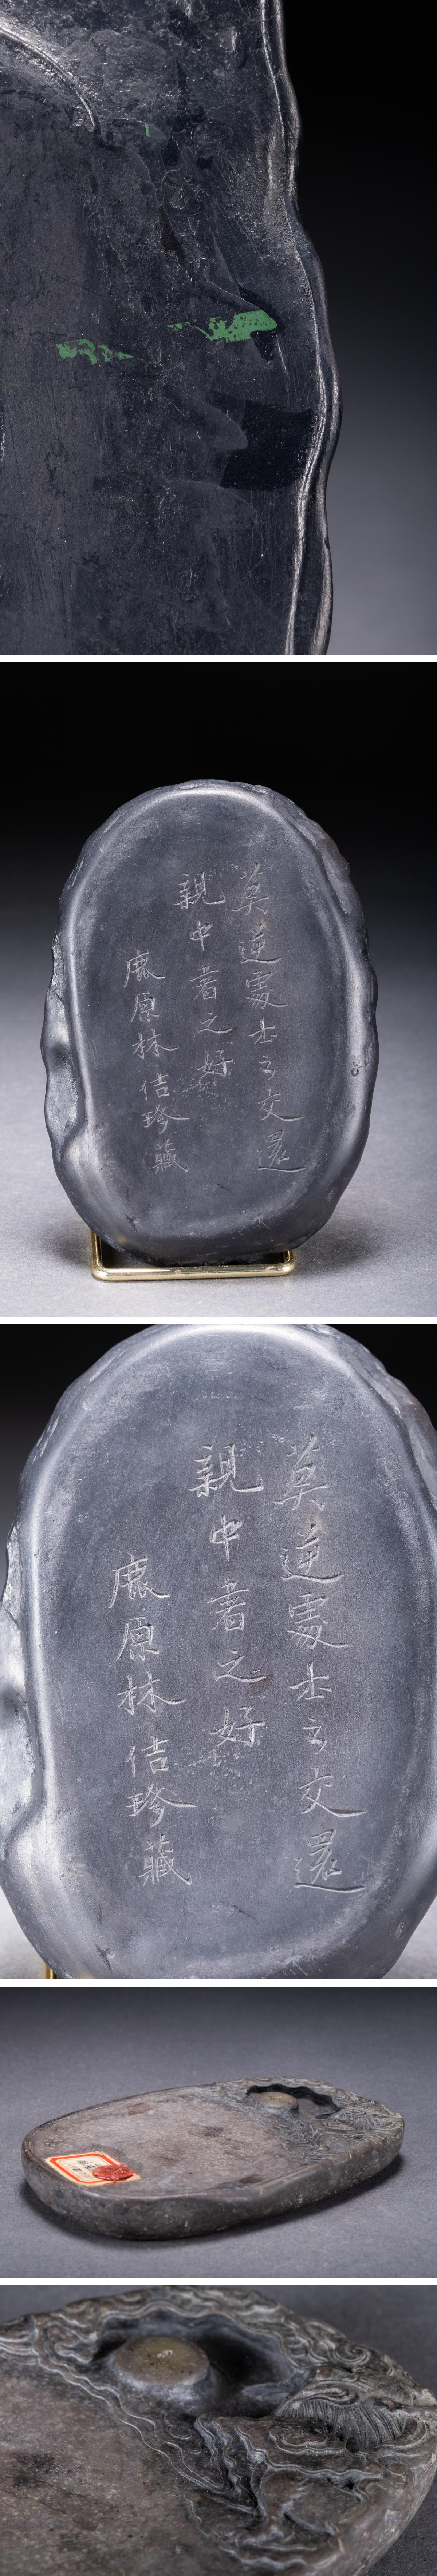 莫逆處士之交還
親中者之好
鹿原林佶珍藏
莫逆處士之交還
親中者之好
鹿原林佶珍藏